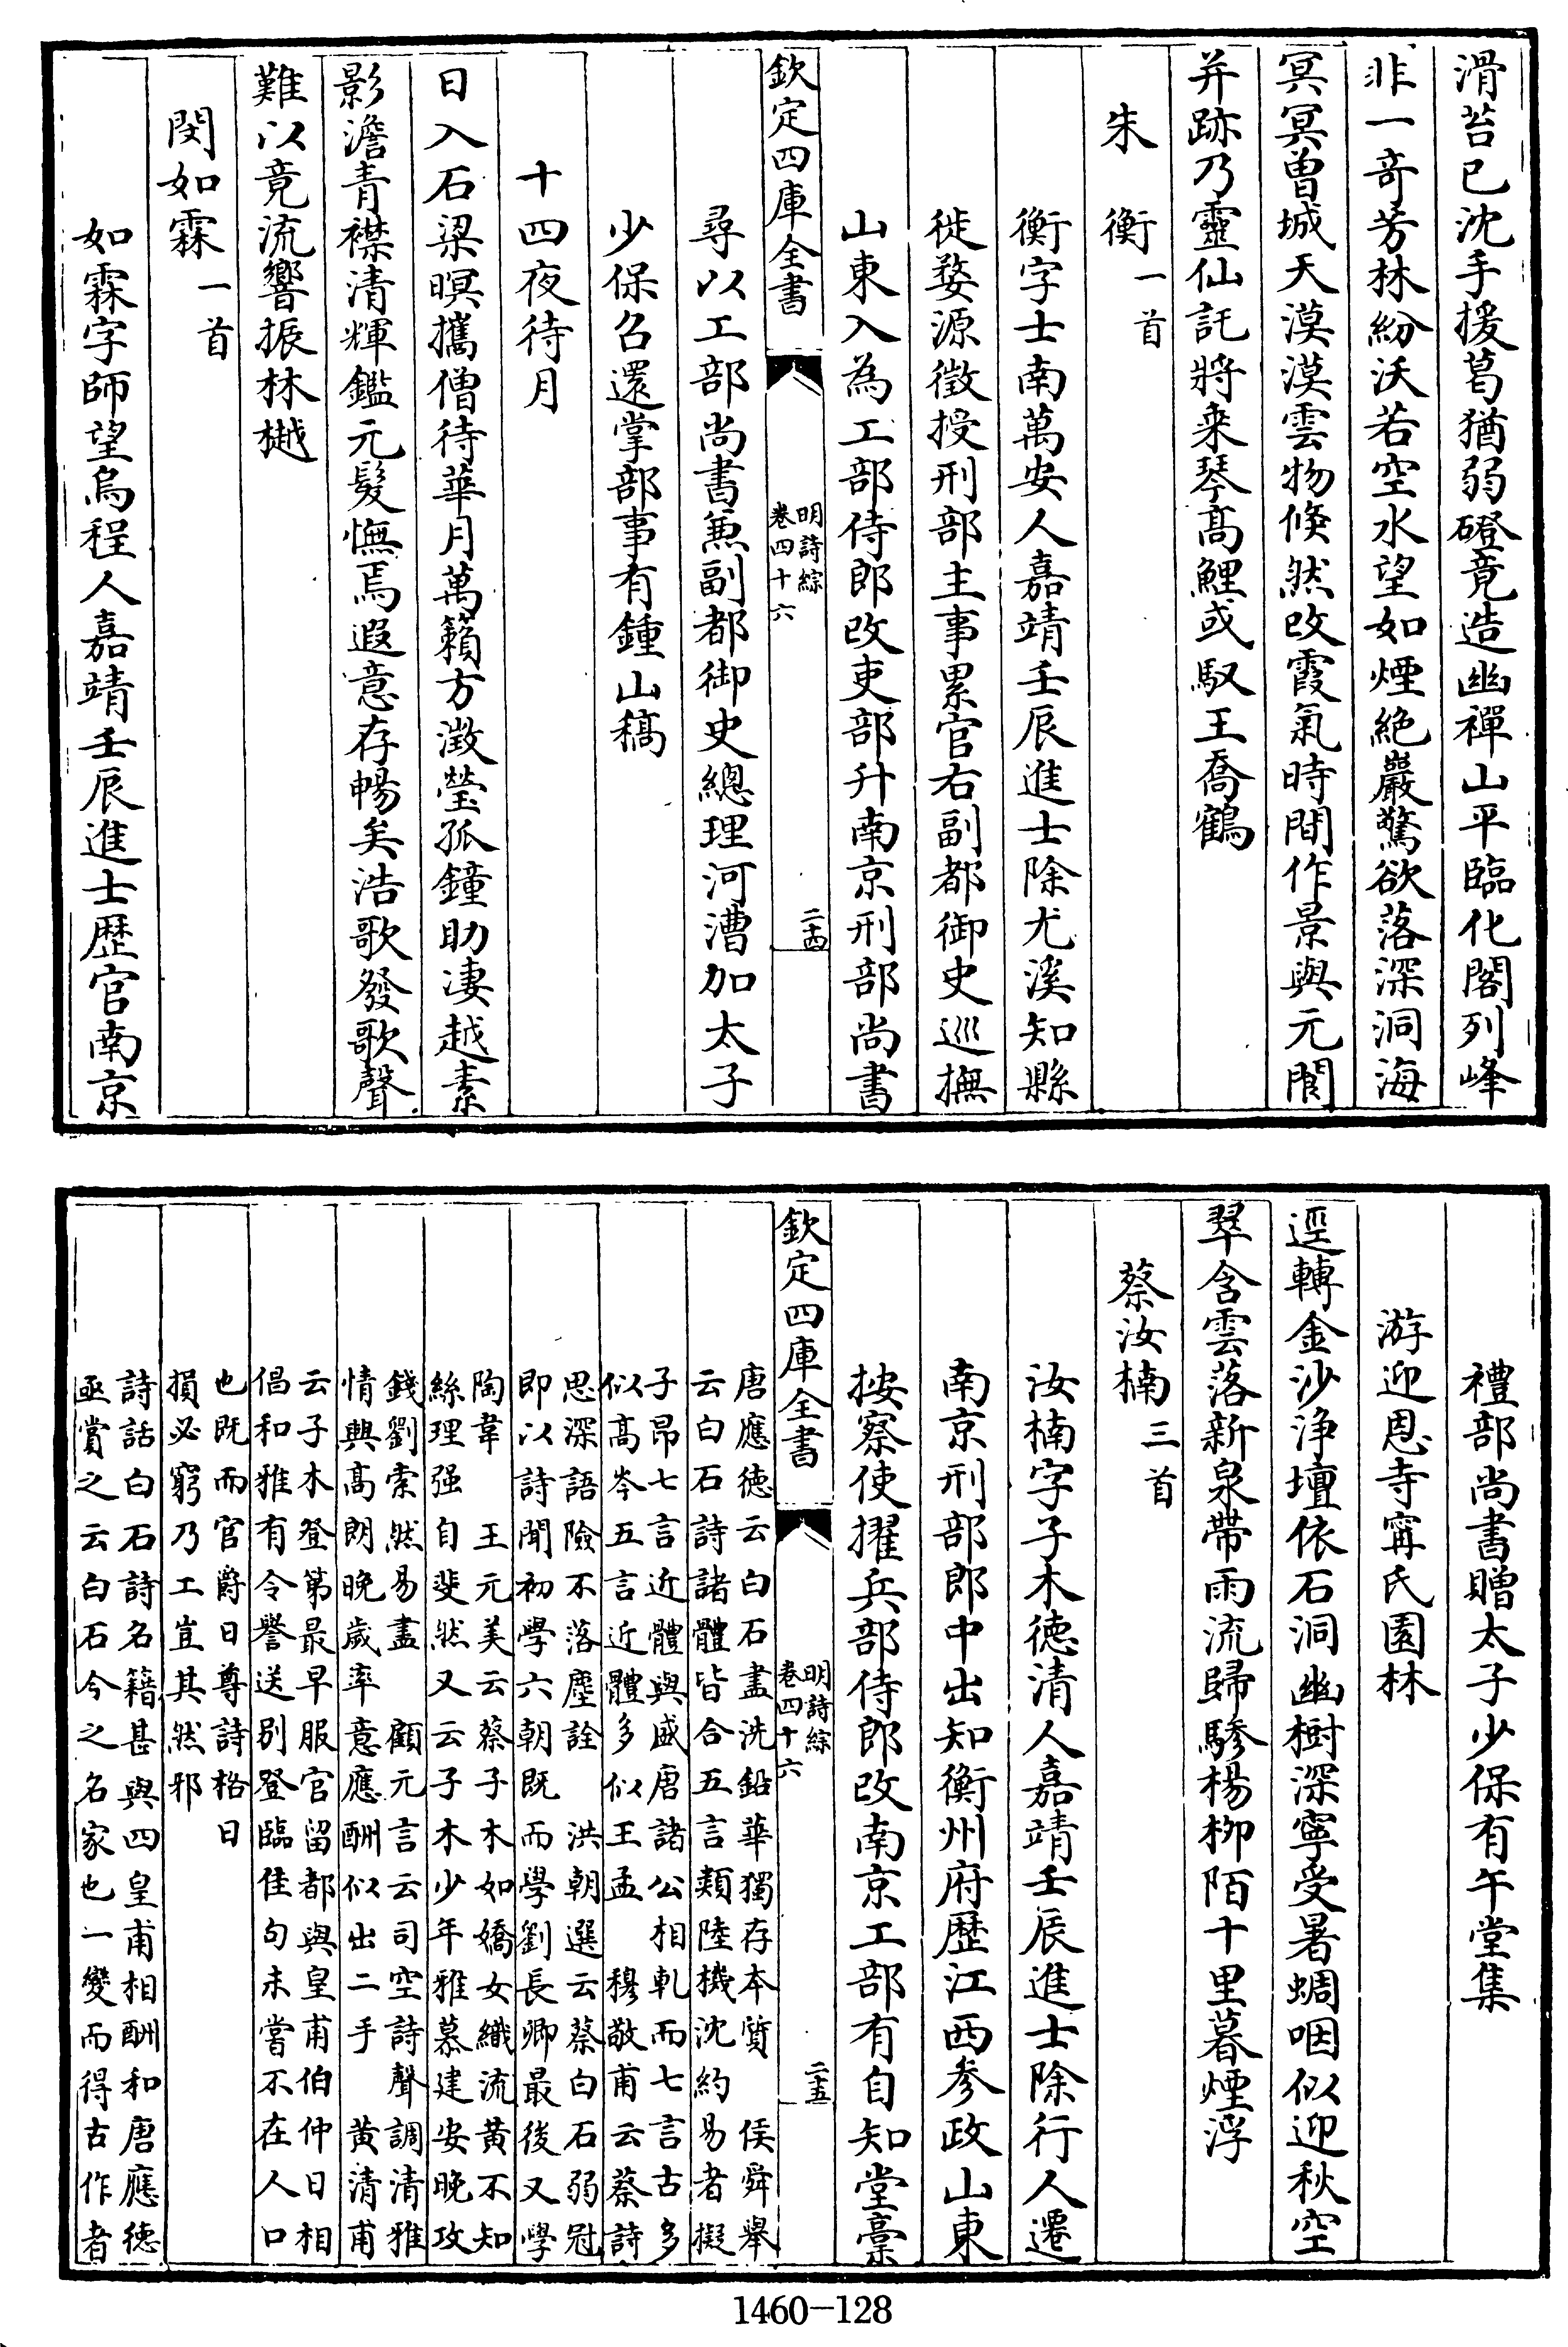 滑苔已沈手援葛猶弱磴竟造幽禪山平臨化閣列峰
非一竒芳林紛沃若空水望如煙絶巖驚欲落深洞海
冥冥曽城天漠漠雲物倐然改霞氣時間作景與元閬
并跡乃靈仙託將来琴髙鯉或馭王喬鶴
朱衡一首
衡字士南萬安人嘉靖壬辰進士除尤溪知縣
徙婺源徵授刑部主事累官右副都御史巡撫
山東入為工部侍郎改吏部升南京刑部尚書
欽定四庫全書
明詩綜
卷四十六
二十四
尋以工部尚書兼副都御史總理河漕加太子
少保召還掌部事有鍾山稿
十四夜待月
日入石梁暝攜僧待華月萬籟方澂瑩孤鐘助凄越素
影澹青襟清輝鑑元髮憮焉遐意存暢矣浩歌發歌聲
難以竟流響振林樾
閔如霖一首
如霖字師望烏程人嘉靖壬辰進士歴官南京
禮部尚書贈太子少保有午堂集
游迎恩寺甯氏園林
逕轉金沙浄壇依石洞幽樹深寧受暑蜩咽似迎秋空
翠含雲落新泉帶雨流歸驂楊柳陌十里暮煙浮
蔡汝楠三首
汝楠字子木徳清人嘉靖壬辰進士除行人遷
南京刑部郎中出知衡州府歴江西參政山東
按察使擢兵部侍郎改南京工部有自知堂稾
欽定四庫全書
明詩綜
卷四十六
二十五
唐應徳云白石盡洗鉛華獨存本質　侯舜舉
云白石詩諸體皆合五言類陸機沈約易者擬
子昂七言近體與盛唐諸公相軋而七言古多
似髙岑五言近體多似王孟　穆敬甫云蔡詩
思深語險不落塵詮　洪朝選云蔡白石弱冠
即以詩聞初學六朝既而學劉長卿最後又學
陶韋　王元美云蔡子木如嬌女織流黄不知
絲理强自斐然又云子木少年雅慕建安晚攻
錢劉索然易盡　顧元言云司空詩聲調清雅
情興髙朗晚歳率意應酬似出二手　黄清甫
云子木登第最早服官留都與皇甫伯仲日相
倡和雅有令譽送别登臨佳句未嘗不在人口
也既而官爵日尊詩格日
損必窮乃工豈其然邪
詩話白石詩名籍甚與四皇甫相酬和唐應徳
亟賞之云白石今之名家也一變而得古作者
1460-128